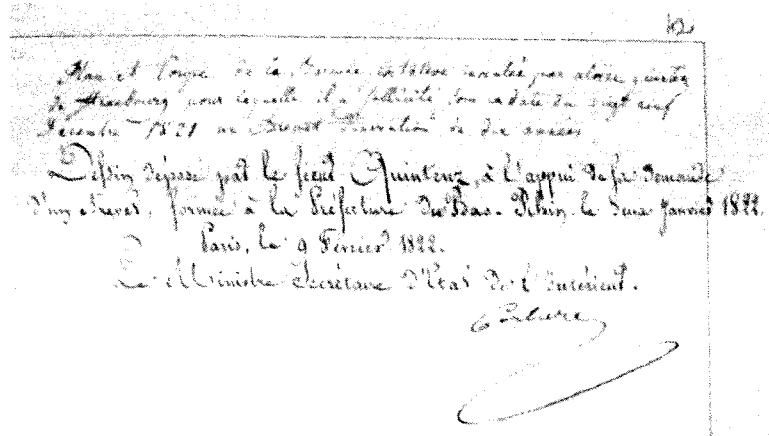 Plan et Coupe de la Romaine en Balance inventée par aloise quintenz
de Strasbourg pour laquelle il a sollicité sous la date du vingt neuf
Décembre 1821 un Brevet d'invention de dix années
Dessin déposé par le sieur Quintenz, à l'appui de sa demande
d'un Brevet, formée à la Préfecture du Bas-Rhin, le deux Janvier 1822.
Paris, le 9 Février 1822.
Le Ministre Secrétaire d'Etat de l'Intérieur.